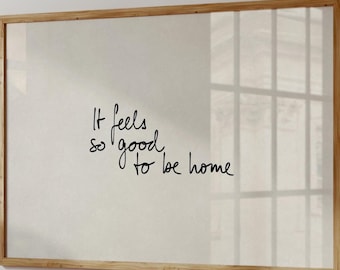 It feels
so good
to be home